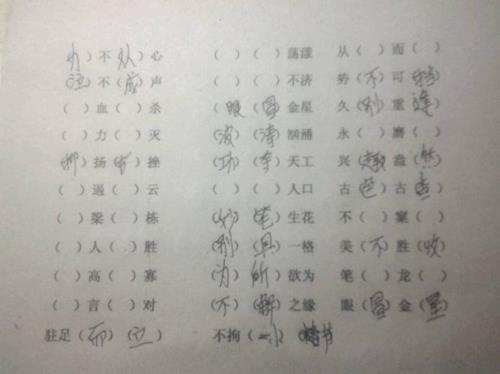 (力)不(从)心 ( )( )荡漾 从( )而( )
( )不(应)声 ( )( )不济 势(不)可(挡)
( )血( )杀 (眼)(冒)金星 久(别)重(逢)
( )力( )灭 (波)(涛)汹涌 永( )磨( )
(抑)扬(顿)挫 (巧)(夺)天工 兴( )盎(然)
( )遏( )云 ( )( )人口 古(色)古( )
( )梁( )栋 (妙)(笔)生花 不( )窠( )
( )人( )胜 (别)(具)一格 美(不)胜(收)
( )高( )寡 (为)(所)欲为 笔( )龙( )
( )言( )对 (不)(解)之缘 眼(冒)金(星)
驻足(而)(立) 不拘(一)(小)节